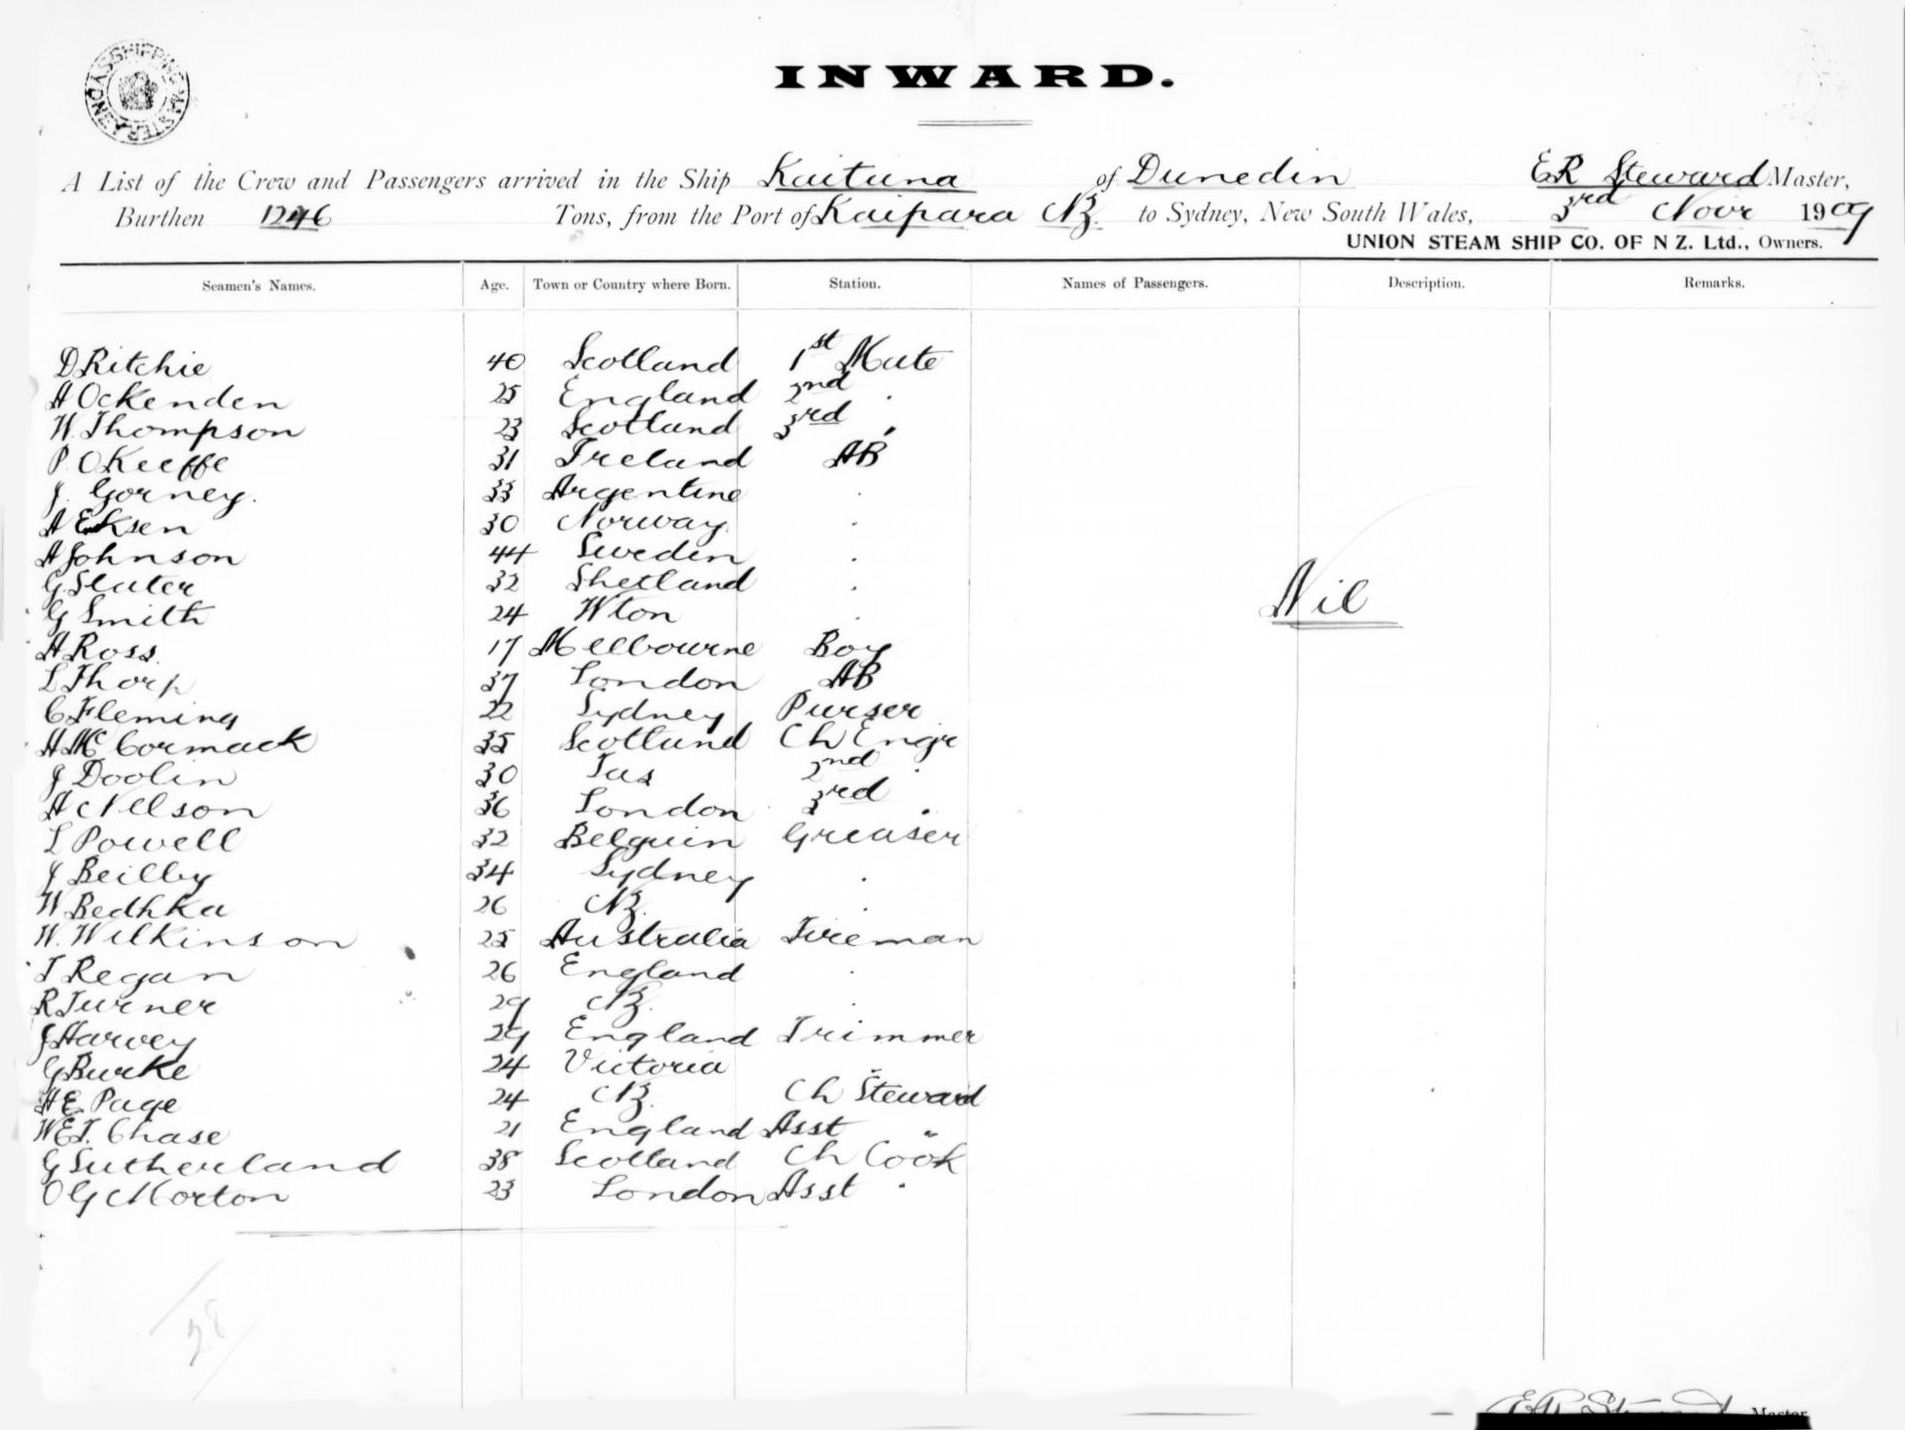 SHIPPING MASTER SYDNEY
INWARD.
A List of the Crew and Passengers arrived in the Ship Kaituna of Dunedin ER Steward Master,
Burthen 1246 Tons, from the Port of Kaipara NZ. to Sydney, New South Wales, 3rd Novr 1909
UNION STEAM SHIP CO. OF N Z. Ltd., Owners.
Seamen's Names. Age. Town or Country where Born. Station. Names of Passengers. Description. Remarks.
D Ritchie 40 Scotland 1st Mate
H Ockenden 25 England 2nd "
W. Thompson 23 Scotland 3rd "
P. OKeeffe 31 Ireland AB
J. Gorney. 33 Argentine "
A Eksen 30 Norway. "
A Johnson 44 Sweden "
G Slater 32 Shetland "
G Smith 24 Wton "
Nil
H Ross 17 Melbourne Boy
L Thorp 37 London AB
C Fleming 22 Sydney Purser
H McCormack 35 Scotland Ch Engr
J Doolin 30 Tas 2nd "
H Nelson 36 London 3rd "
L Powell 32 Belguin Greaser
J Beilby 34 Sydney "
W 26 NZ. "
W. Wilkinson 25 Australia Fireman
T Regan 26 England "
R Turner 29 NZ. "
J Harvey 29 England Trimmer
G Burke 24 Victoria "
H E. Page 24 NZ. Ch Steward
W E T. Chase 21 England Asst "
G Sutherland 38 Scotland Ch Cook
O G Morton 23 London Asst "
28